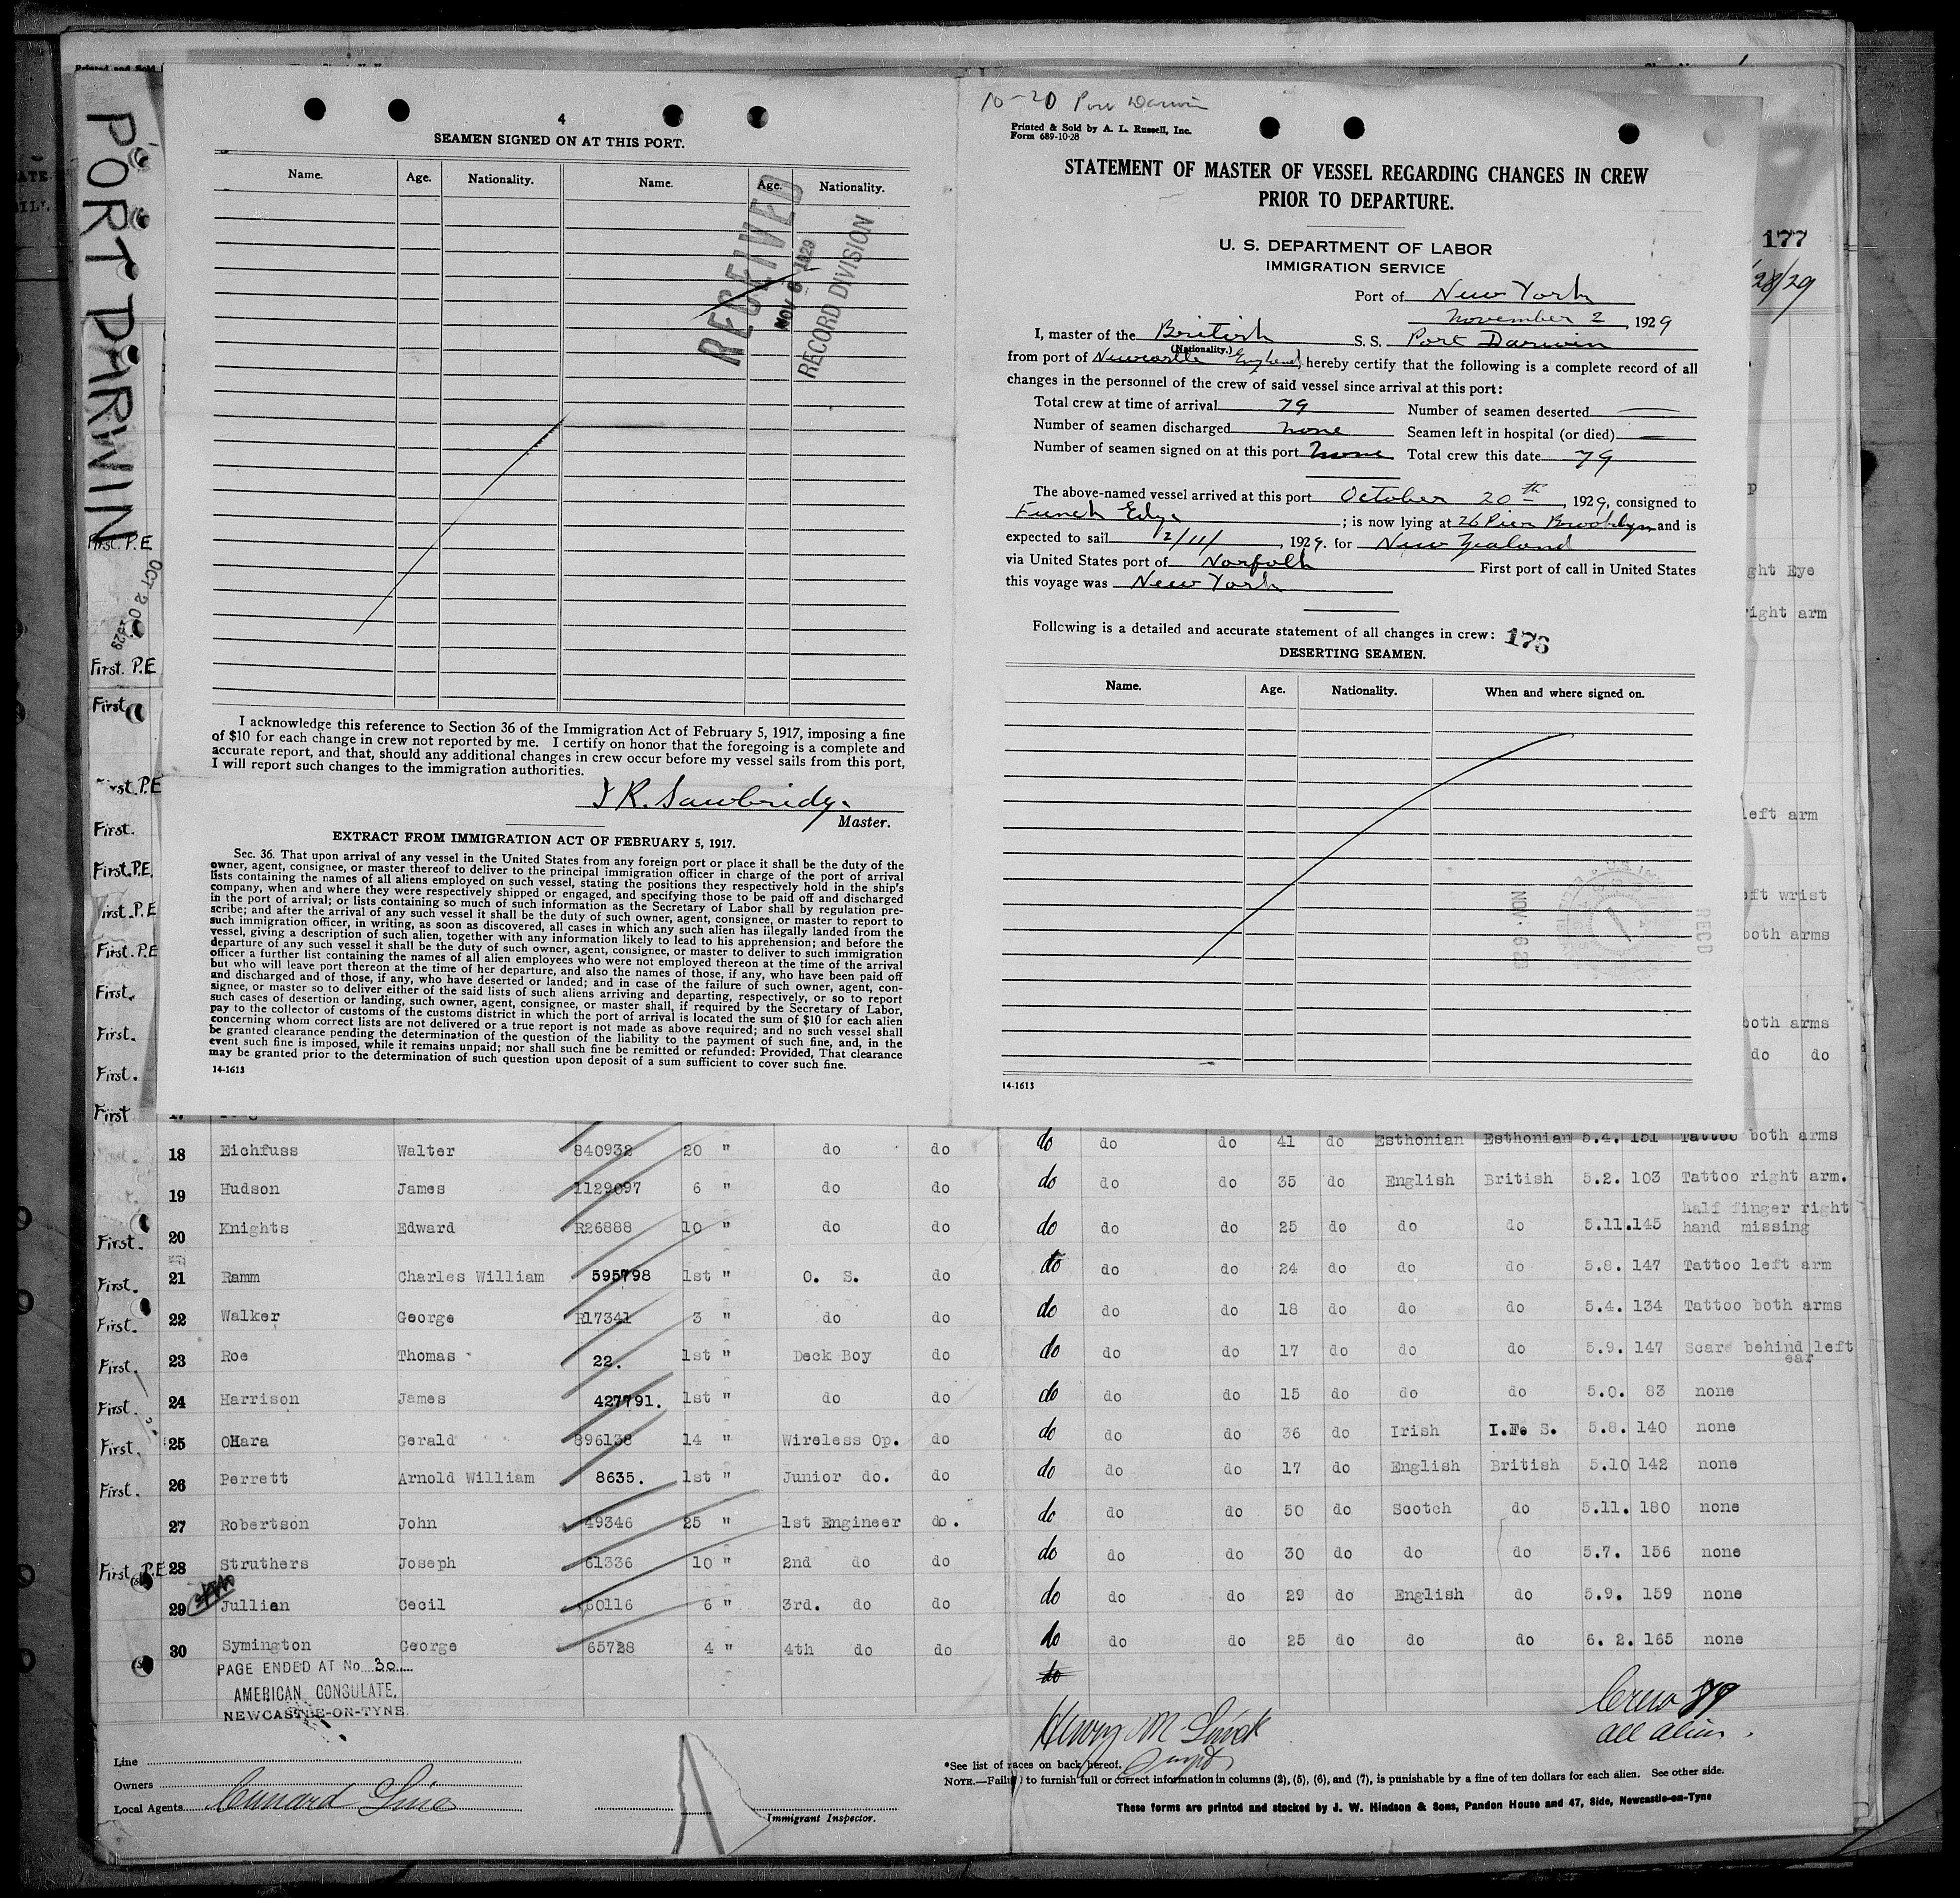 PORT DARWIN
First. P.E
OCT 20 1929
First. P.E
First
First.
First. P.E.
First. P.E
First. P.E
First.
First.
First.
First
4
SEAMEN SIGNED ON AT THIS PORT.
Name. Age. Nationality. Name. Age. Nationality.
RECEIVED
NOV 6 1929
RECORD DIVISION
I acknowledge this reference to Section 36 of the Immigration Act of February 5, 1917, imposing a fine
of $10 for each change in crew not reported by me. I certify on honor that the foregoing is a complete and
accurate report, and that, should any additional changes in crew occur before my vessel sails from this port,
I will report such changes to the immigration authorities.
R. Sawbridge
Master.
EXTRACT FROM IMMIGRATION ACT OF FEBRUARY 5, 1917.
Sec. 36. That upon arrival of any vessel in the United States from any foreign port or place it shall be the duty of the
owner, agent, consignee, or master thereof to deliver to the principal immigration officer in charge of the port of arrival
lists containing the names of all aliens employed on such vessel, stating the positions they respectively hold in the ship's
company, when and where they were respectively shipped or engaged, and specifying those to be paid off and discharged
in the port of arrival; or lists containing so much of such information as the Secretary of Labor shall by regulation pre-
scribe; and after the arrival of any such vessel it shall be the duty of such owner, agent, consignee, or master to report to
such immigration officer, in writing, as soon as discovered, all cases in which any such alien has illegally landed from the
vessel, giving a description of such alien, together with any information likely to lead to his apprehension; and before the
departure of any such vessel it shall be the duty of such owner, agent, consignee, or master to deliver to such immigration
officer a further list containing the names of all alien employees who were not employed thereon at the time of the arrival
but who will leave port thereon at the time of her departure, and also the names of those, if any, who have been paid off
and discharged and of those, if any, who have deserted or landed; and in case of the failure of such owner, agent, con-
signee, or master so to deliver either of the said lists of such aliens arriving and departing, respectively, or so to report
such cases of desertion or landing, such owner, agent, consignee, or master shall, if required by the Secretary of Labor,
pay to the collector of customs of the customs district in which the port of arrival is located the sum of $10 for each alien
concerning whom correct lists are not delivered or a true report is not made as above required; and no such vessel shall
be granted clearance pending the determination of the question of the liability to the payment of such fine, and, in the
event such fine is imposed, while it remains unpaid; nor shall such fine be remitted or refunded: Provided, That clearance
may be granted prior to the determination of such question upon deposit of a sum sufficient to cover such fine.
14-1613
10-20 Port Darwin
Printed & Sold by A. L. Russell, Inc.
Form 689-10-28
STATEMENT OF MASTER OF VESSEL REGARDING CHANGES IN CREW
PRIOR TO DEPARTURE.
U. S. DEPARTMENT OF LABOR
IMMIGRATION SERVICE
Port of New York
November 2, 1929
I, master of the British S. S. Port Darwin
(Nationality.)
from port of Newcastle England, hereby certify that the following is a complete record of all
changes in the personnel of the crew of said vessel since arrival at this port:
Total crew at time of arrival 79 Number of seamen deserted
Number of seamen discharged none Seamen left in hospital (or died)
Number of seamen signed on at this port None Total crew this date 79
The above-named vessel arrived at this port October 20th, 1929, consigned to
Funch Edye; is now lying at 26 Pier Brooklyn and is
expected to sail 2/11/, 1929. for New Zealand
via United States port of Norfolk First port of call in United States
this voyage was New York
Following is a detailed and accurate statement of all changes in crew: 176
DESERTING SEAMEN.
Name. Age. Nationality. When and where signed on.
NOV 6 29
RECD
14-1613
177
/28/29
ght Eye
right arm
left arm
eft wrist
both arms
both arms
do do
18 Eichfuss Walter 840932 20 " do do do do do 41 do Esthonian Esthonian 5.4. 151 Tattoo both arms
19 Hudson James 1129097 6 " do do do do do 35 do English British 5.2. 103 Tattoo right arm.
First. 20 Knights Edward R26888 10 " do do do do do 25 do do do 5.11. 145 half finger right hand missing
First. 21 Ramm Charles William 595798 1st " O. S. do do do do 24 do do do 5.8. 147 Tattoo left arm
First. 22 Walker George R17341 3 " do do do do do 18 do do do 5.4. 134 Tattoo both arms
First. 23 Roe Thomas 22. 1st " Deck Boy do do do do 17 do do do 5.9. 147 Scar behind left ear
First. 24 Harrison James 427791. 1st " do do do do do 15 do do do 5.0. 83 none
First. 25 OHara Gerald 896138 14 " Wireless Op. do do do do 36 do Irish I.F. S. 5.8. 140 none
First. 26 Perrett Arnold William 8635. 1st " Junior do. do do do do 17 do English British 5.10 142 none
27 Robertson John 49346 25 " 1st Engineer do. do do do 50 do Scotch do 5.11. 180 none
First P.E 28 Struthers Joseph 61336 10 " 2nd do do do do do 30 do do do 5.7. 156 none
29 Jullien Cecil 60116 6 " 3rd. do do do do do 29 do English do 5.9. 159 none
30 Symington George 65728 4 " 4th do do do do do 25 do do do 6. 2. 165 none
PAGE ENDED AT No 30
AMERICAN CONSULATE,
NEWCASTLE-ON-TYNE
do
Crew 79
all alien.
Line
Owners
Local Agents Cunard Line
Immigrant Inspector.
*See list of races on back hereof.
NOTE.—Failure to furnish full or correct information in columns (2), (5), (6), and (7), is punishable by a fine of ten dollars for each alien. See other side.
These forms are printed and stocked by J. W. Hindson & Sons, Pandon House and 47, Side, Newcastle-on-Tyne